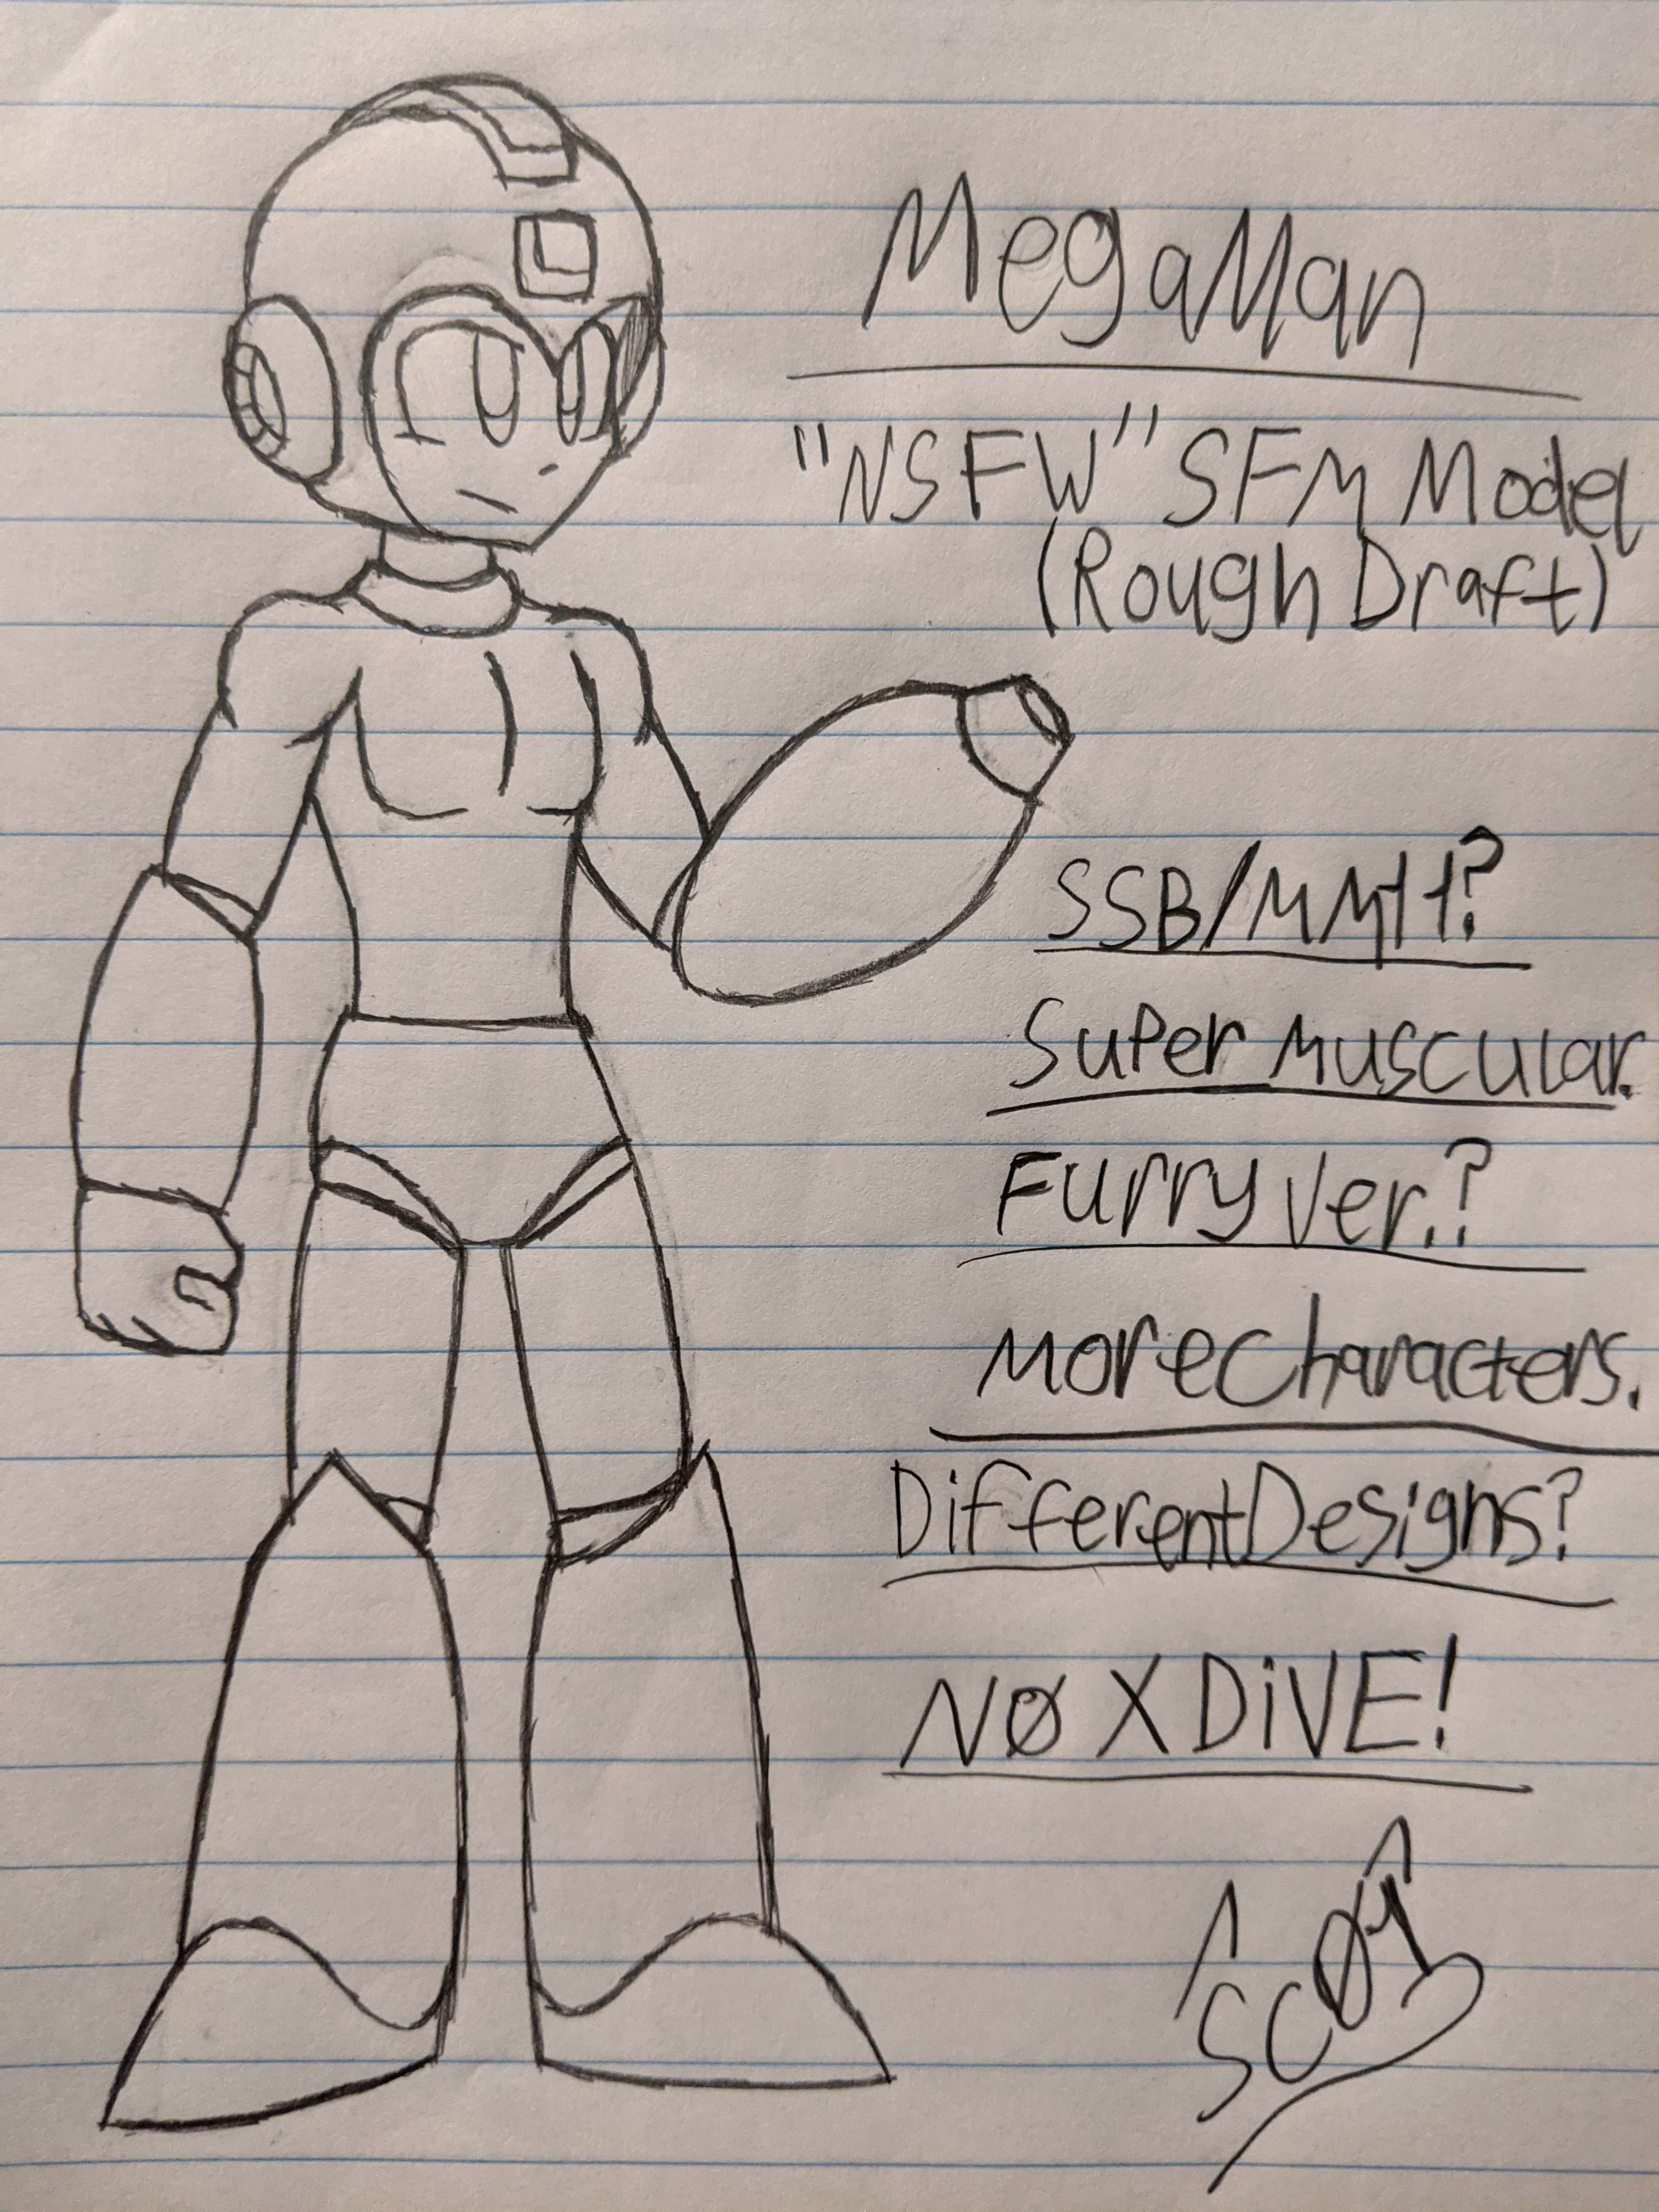 MegaMan
"NSFW" SFM Model
(Rough Draft)
SSB/MM11?
Super Muscular.
Furry Ver.?
More Characters.
Different Designs?
NØ X DiVE!